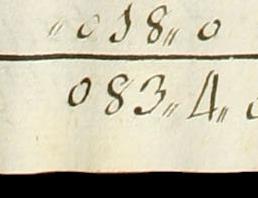 „018„0
083„4„0